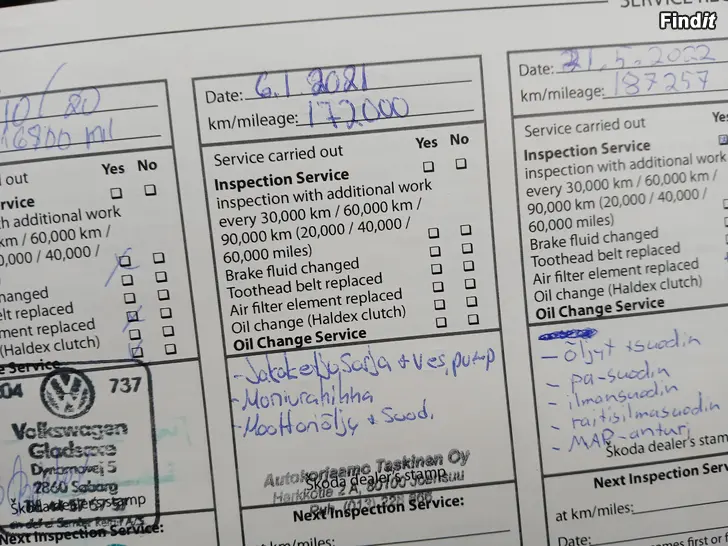 SERVICE RE
Findit
10/20
Yes No
d out
rvice
th additional work
km / 60,000 km /
0,000 / 40,000 /
hanged
elt replaced
ment replaced
(Haldex clutch)
e Service
04 737
Volkswagen
Gladsaxe
Dynamovej 5
2860 Søborg
Škoda dealer's stamp
Next Inspection Service:
Date: 6.1.2021
km/mileage: 172000
Service carried out Yes No
Inspection Service
inspection with additional work
every 30,000 km / 60,000 km /
90,000 km (20,000 / 40,000 /
60,000 miles)
Brake fluid changed
Toothead belt replaced
Air filter element replaced
Oil change (Haldex clutch)
Oil Change Service
- Jakoketjusarja + ves.pump
- Moniurahihna
- Moottoriöljy + Suod.
Autokorjaamo Taskinen Oy
Škoda dealer's stamp
Harkkotie 2 A, 80100 Joensuu
Next Inspection Service:
at km/miles:
Date: 21.5.2022
km/mileage: 187257
Service carried out Yes
Inspection Service
inspection with additional work
every 30,000 km / 60,000 km /
90,000 km (20,000 / 40,000 /
60,000 miles)
Brake fluid changed
Toothead belt replaced
Air filter element replaced
Oil change (Haldex clutch)
Oil Change Service
- öljyt + suodin
- pa-suodin
- ilmansuodin
- raitisilmasuodin
- MAP-anturi
Škoda dealer's stamp
Next Inspection Serv
at km/miles:
Date: